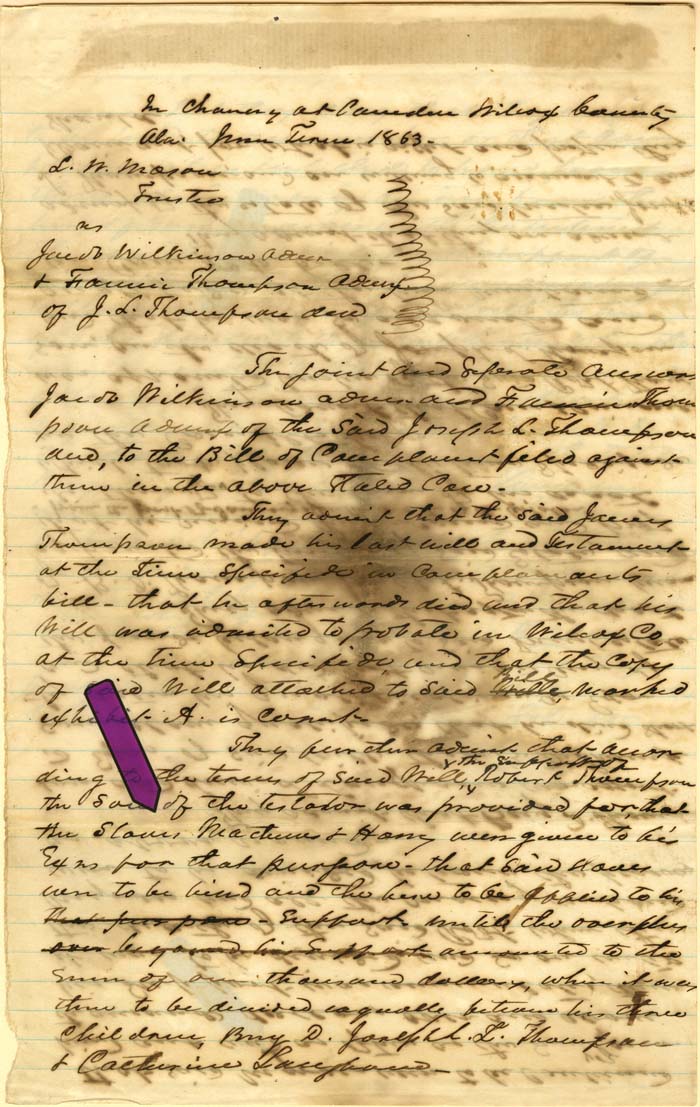 In Chancery at Camden Wilcox County
Ala. June Term 1863.
L. W. Mason
Trustee
vs
Jacob Wilkinson admr
& Fannie Thompson admx
of J. L. Thompson decd
The joint and Seperate answer
Jacob Wilkinson admr and Fannie Thom
pson admx of the Said Joseph L. Thompson
decd, to the Bill of Complaint filed against
them in the above Stated Case.
They admit that the said James
Thompson made his last will and Testament
at the time Specified in Complainants
bill - that he afterwards died and that his
Will was admitted to probate in Wilcox Co
at the time Specified, and that the Copy
of Will attached to said Bill, marked
A. is Correct.
They further admit that accor
ding the terms of said Will, the support of Robert Thompson
the Son of the testator was provided for, that
the Slaves & Harry were given to his
Exrs for that purpose - that said slaves
were to be hired and the hire to be applied to his
that purpose - Support until the overplus
over beyond his Support amounted to the
Sum of one thousand dollars, when it was
then to be divided equally between his three
Children, D. Joseph L. Thompson
& Catherine